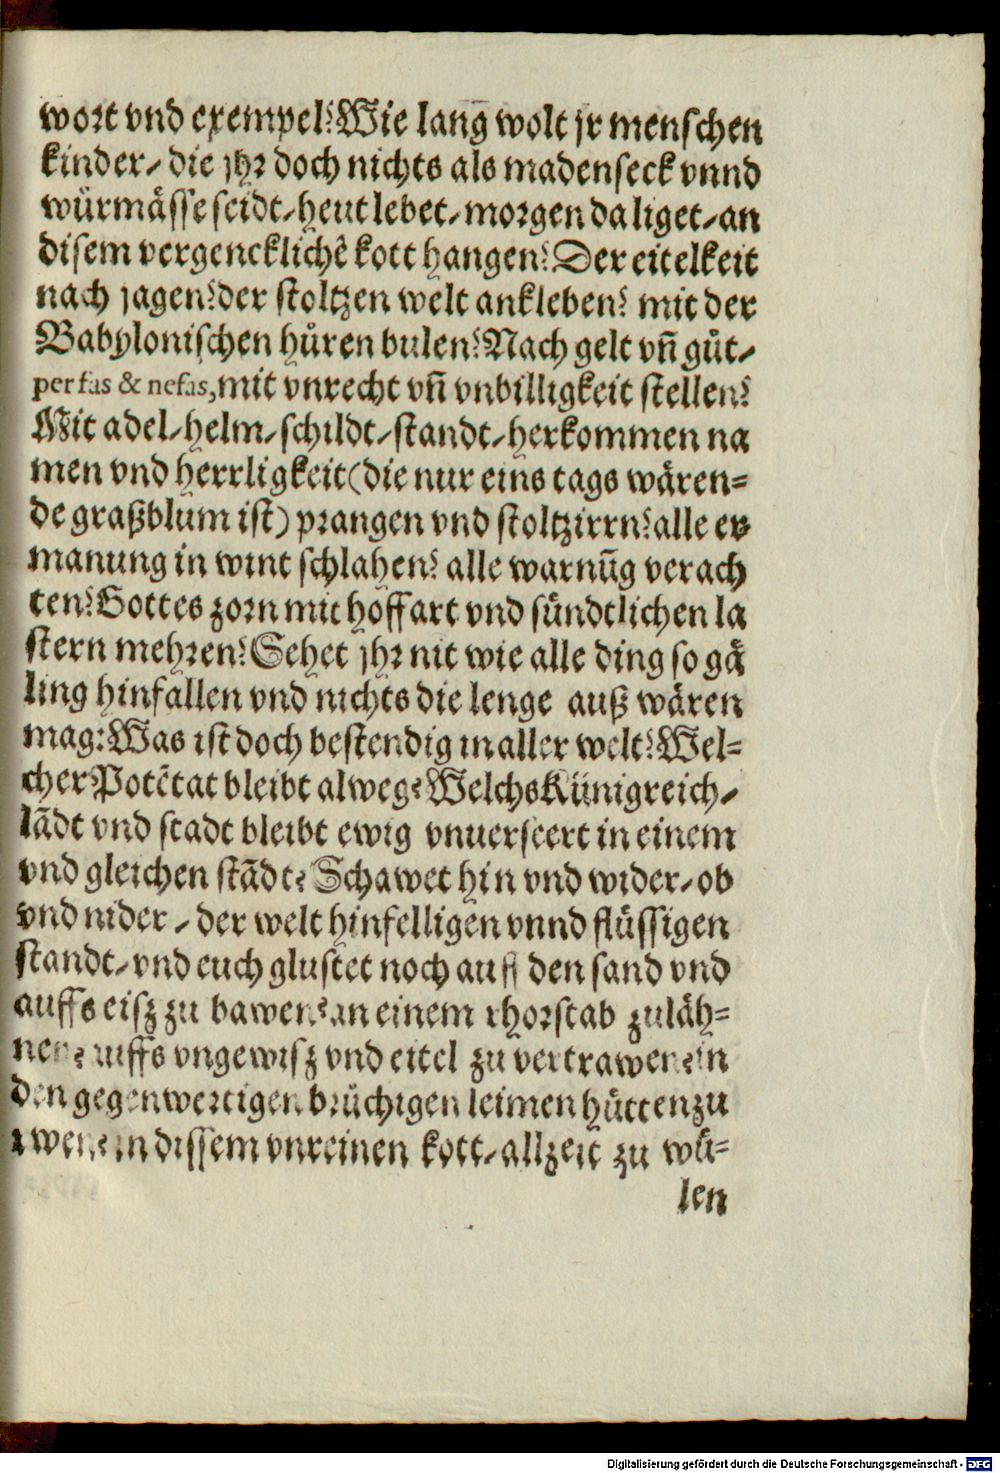 wort vnd exempel? Wie lang wolt jr menschen
kinder/ die jhr doch nichts als madenseck vnnd
würmässe seidt/ heut lebet/ morgen da liget/ an
disem vergencklichẽ kott hangen? Der eitelkeit
nach jagen? der stoltzen welt ankleben? mit der
Babylonischen hůren bulen? Nach gelt vñ gůt/
per fas & nefas, mit vnrecht vñ vnbilligkeit stellen?
Mit adel/ helm/ schildt/ standt/ herkommen na
men vnd herrligkeit (die nur eins tags wären=
de graßblům ist) prangen vnd stoltzirrn? alle er
manung in wint schlahen? alle warnũg verach
ten? Gottes zorn mit hoffart vnd sündtlichen la
stern mehren? Sehet jhr nit wie alle ding so gä
ling hinfallen vnd nichts die lenge auß wären
mag: Was ist doch bestendig in aller welt? Wel=
cher Potẽtat bleibt alweg? Welchs Künigreich/
lãdt vnd stadt bleibt ewig vnuerseert in einem
vnd gleichen stãdt? Schawet hin vnd wider/ ob
vnd nider/ der welt hinfelligen vnnd flüssigen
standt/ vnd euch glustet noch auff den sand vnd
auffs eisz zu bawen? an einem rhorstab zu läh=
nen? auffs vngewisz vnd eitel zu vertrawen? in
den gegenwertigen brüchigen leimen hütten zu
in dissem vnreinen kott/ allzeit zu wů=
len
Digitalisierung gefördert durch die Deutsche Forschungsgemeinschaft - DFG